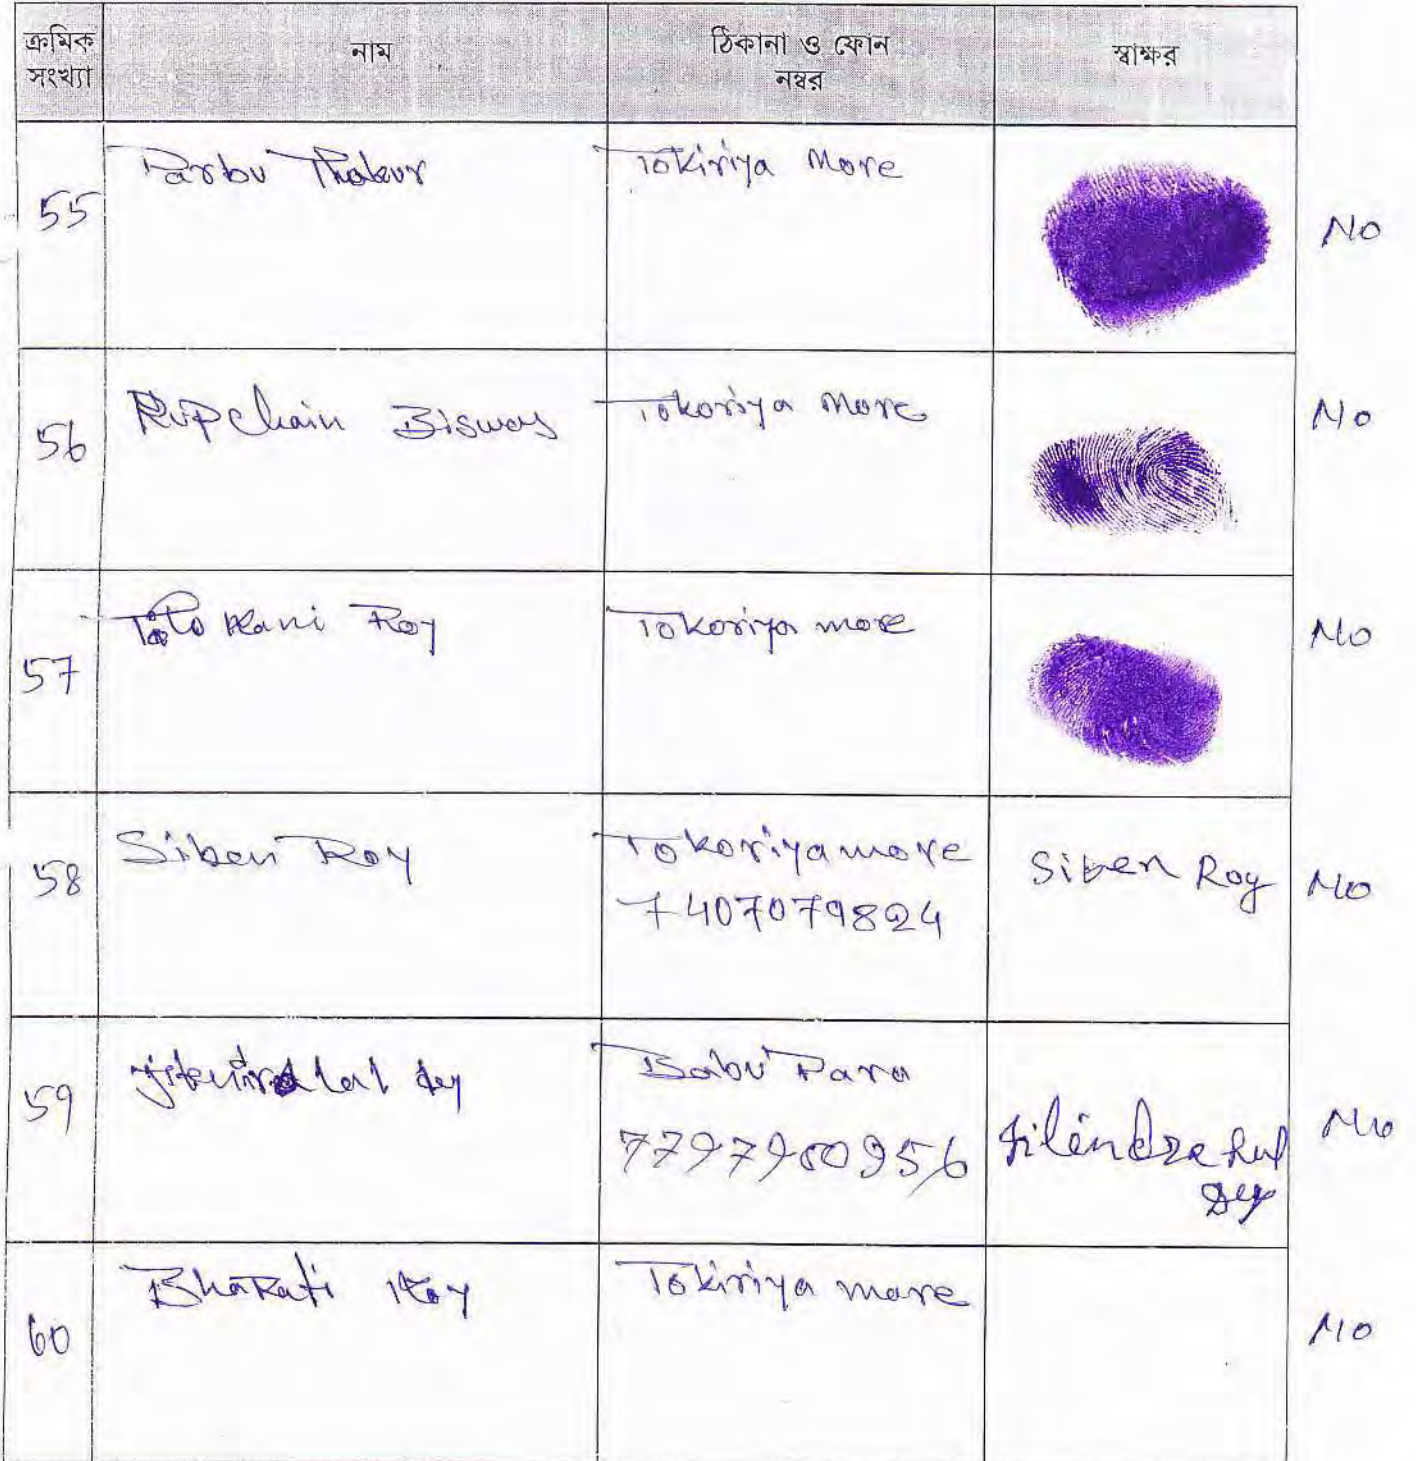 ক্রমিক সংখ্যা নাম ঠিকানা ও ফোন নম্বর স্বাক্ষর
55 Parbu Thakur Tokiriya More No
56 Rupchain Biswas Tokoriya More No
57 Roy Tokoriya more No
58 Siben Roy Tokoriya more Siben Roy No
7407079824
59 Jitendra lal dey Babu Para No
7797980956 Jitendra Lal
Dey
60 Bharati Roy Tokiriya more No